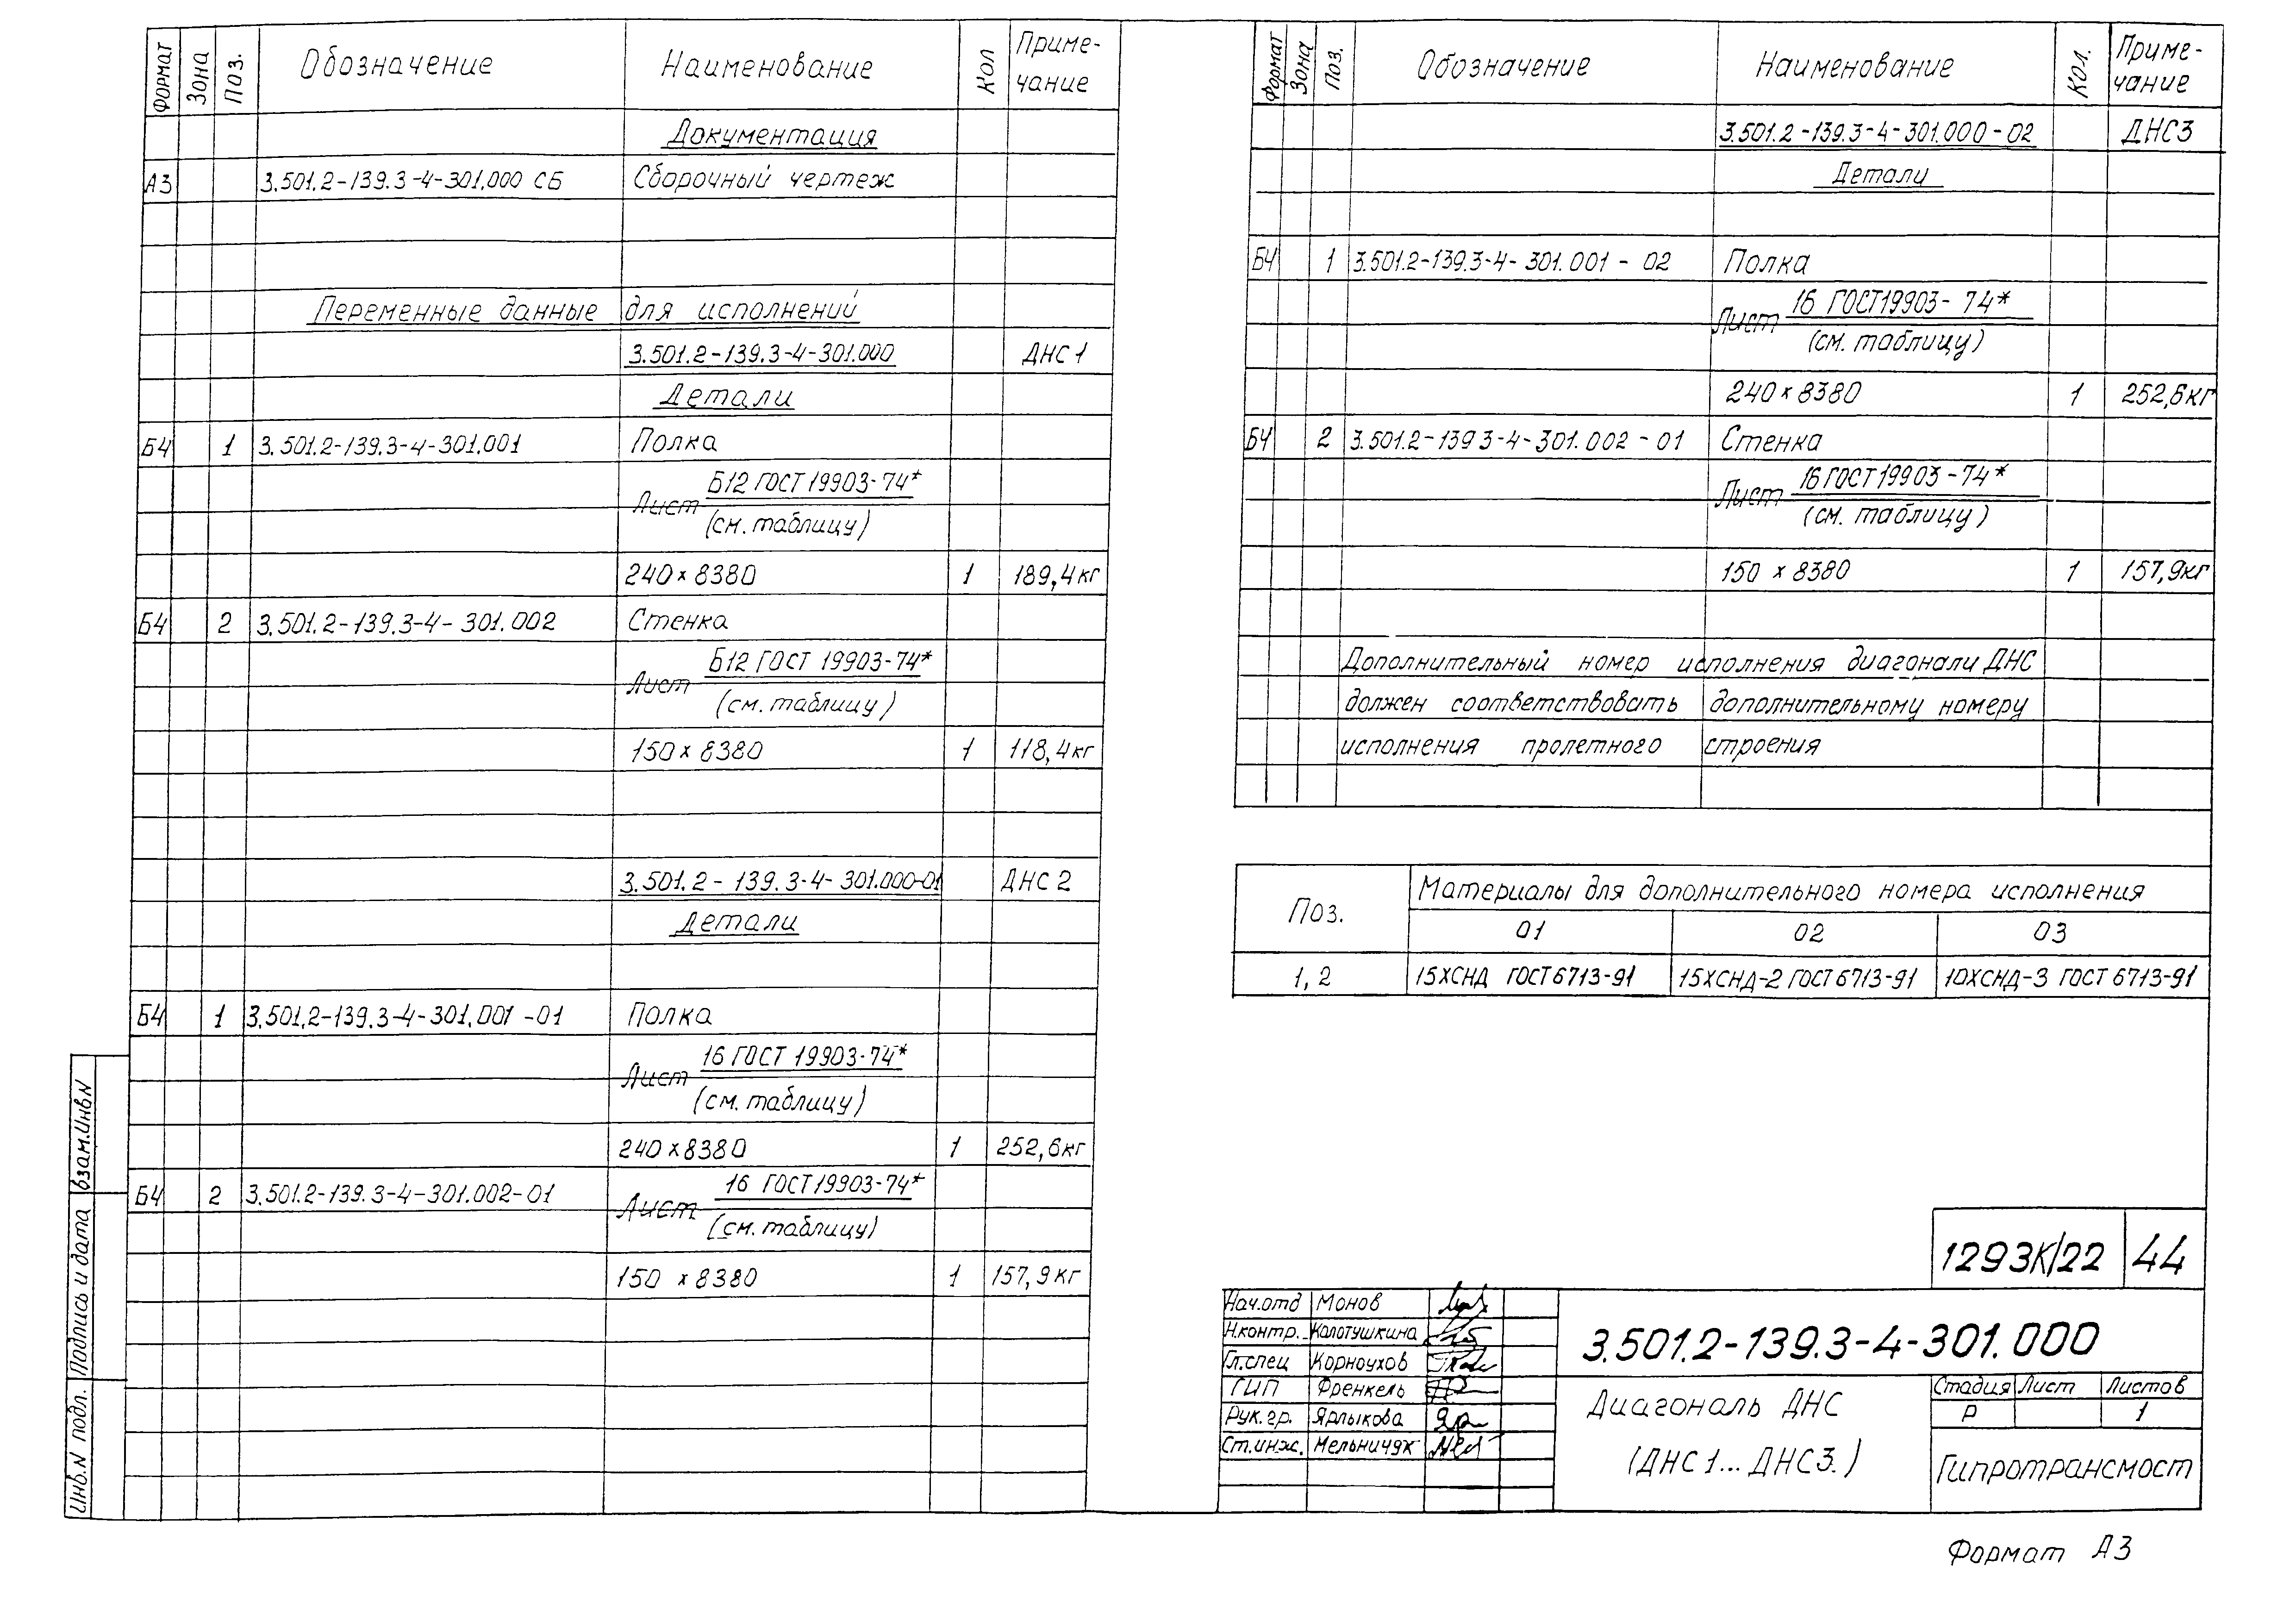 Формат Зона Поз. Обозначение Наименование Кол Приме-
чание
Документация
А3 3.501.2-139.3-4-301.000 СБ Сборочный чертеж
Переменные данные для исполнений
3.501.2-139.3-4-301.000 ДНС 1
Детали
Б4 1 3.501.2-139.3-4-301.001 Полка
Лист Б12 ГОСТ 19903-74*
(см. таблицу)
240 x 8380 1 189,4 кг
Б4 2 3.501.2-139.3-4-301.002 Стенка
Лист Б12 ГОСТ 19903-74*
(см. таблицу)
150 x 8380 1 118,4 кг
3.501.2-139.3-4-301.000-01 ДНС 2
Детали
Б4 1 3.501.2-139.3-4-301.001-01 Полка
Лист 16 ГОСТ 19903-74*
(см. таблицу)
240 x 8380 1 252,6 кг
Б4 2 3.501.2-139.3-4-301.002-01 Лист 16 ГОСТ 19903-74*
(см. таблицу)
150 x 8380 1 157,9 кг
Взам.инв.N
Подпись и дата
Инв.N подл.
Формат Зона Поз. Обозначение Наименование Кол. Приме-
чание
3.501.2-139.3-4-301.000-02 ДНС3
Детали
Б4 1 3.501.2-139.3-4-301.001-02 Полка
Лист 16 ГОСТ 19903-74*
(см. таблицу)
240 x 8380 1 252,6 кг
Б4 2 3.501.2-139 3-4-301.002-01 Стенка
Лист 16 ГОСТ 19903-74*
(см. таблицу)
150 x 8380 1 157,9кг
Дополнительный номер исполнения диагонали ДНС
должен соответствовать дополнительному номеру
исполнения пролетного строения
Поз. Материалы для дополнительного номера исполнения
01 02 03
1, 2 15ХСНД ГОСТ 6713-91 15ХСНД-2 ГОСТ 6713-91 10ХСНД-3 ГОСТ 6713-91
1293К/22 44
Нач.отд Монов
Н.контр. Колотушкина
Гл.спец Корноухов
ГИП Френкель
Рук.гр. Ярлыкова
Ст.инж. Мельничук
3.501.2-139.3-4-301.000
Диагональ ДНС
(ДНС 1... ДНС3.)
Стадия Лист Листов
Р 1
Гипротрансмост
Формат А3